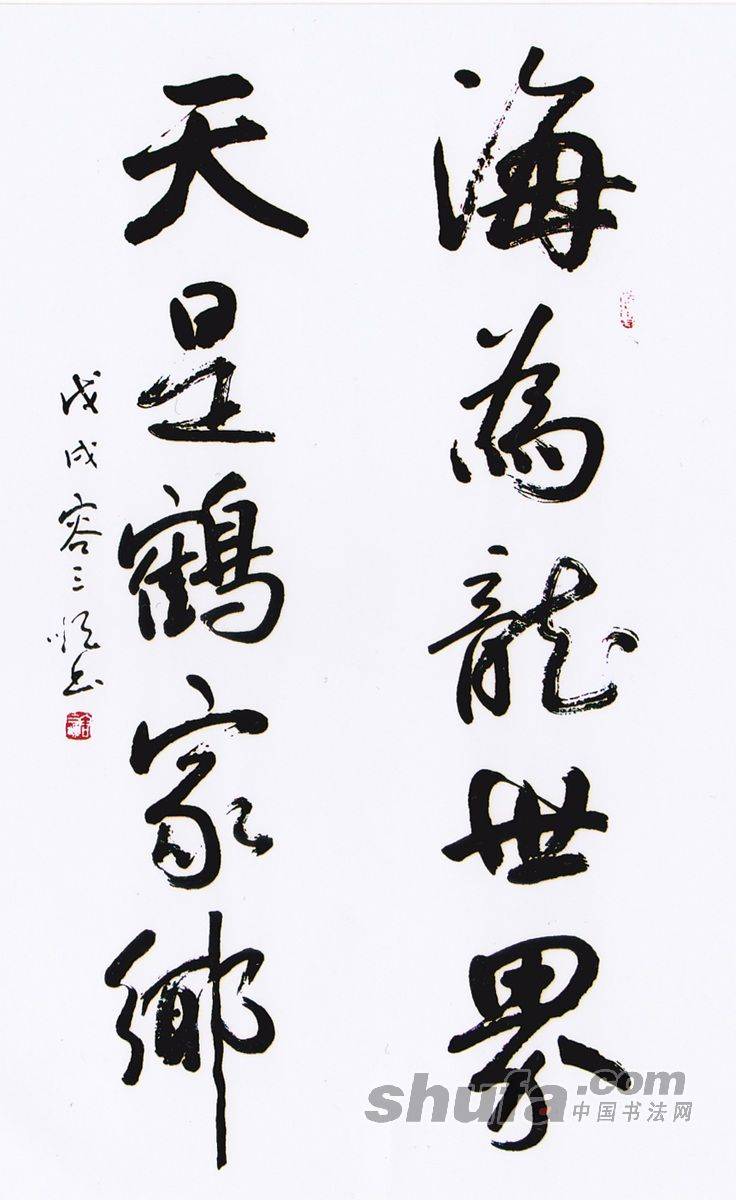 海為龍世界
天是鶴家鄉
戊戌容三
書
shufa.com
中国书法网